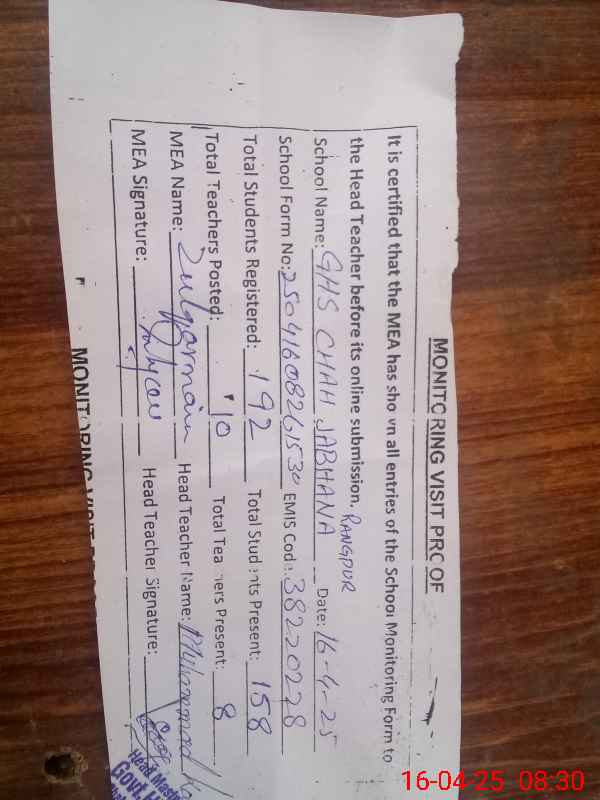 MONITORING VISIT PROOF
It is certified that the MEA has shown all entries of the School Monitoring Form to
the Head Teacher before its online submission.
RANGPUR
School Name: GHS CHAH JABHANA Date: 16-4-25
School Form No: 25041608261530 EMIS Code: 38220228
Total Students Registered: 192 Total Students Present: 158
Total Teachers Posted: 10 Total Teachers Present: 8
MEA Name: Zulqarnain Head Teacher Name: Muhammad
MEA Signature: Head Teacher Signature:
Head Mast
Govt. H
MONITORING VISIT
16-04-25 08:30